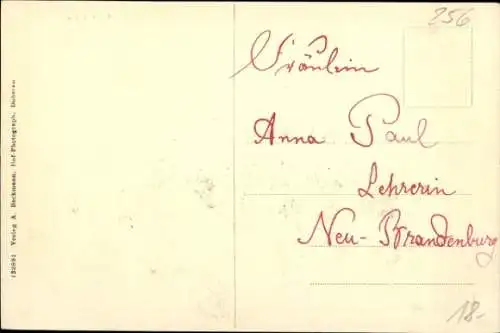 256
Fräulein
Anna Paul
Lehrerin
Neu-Brandenburg
18-
Verlag A. Beckmann, Hof-Photograph, Doberan